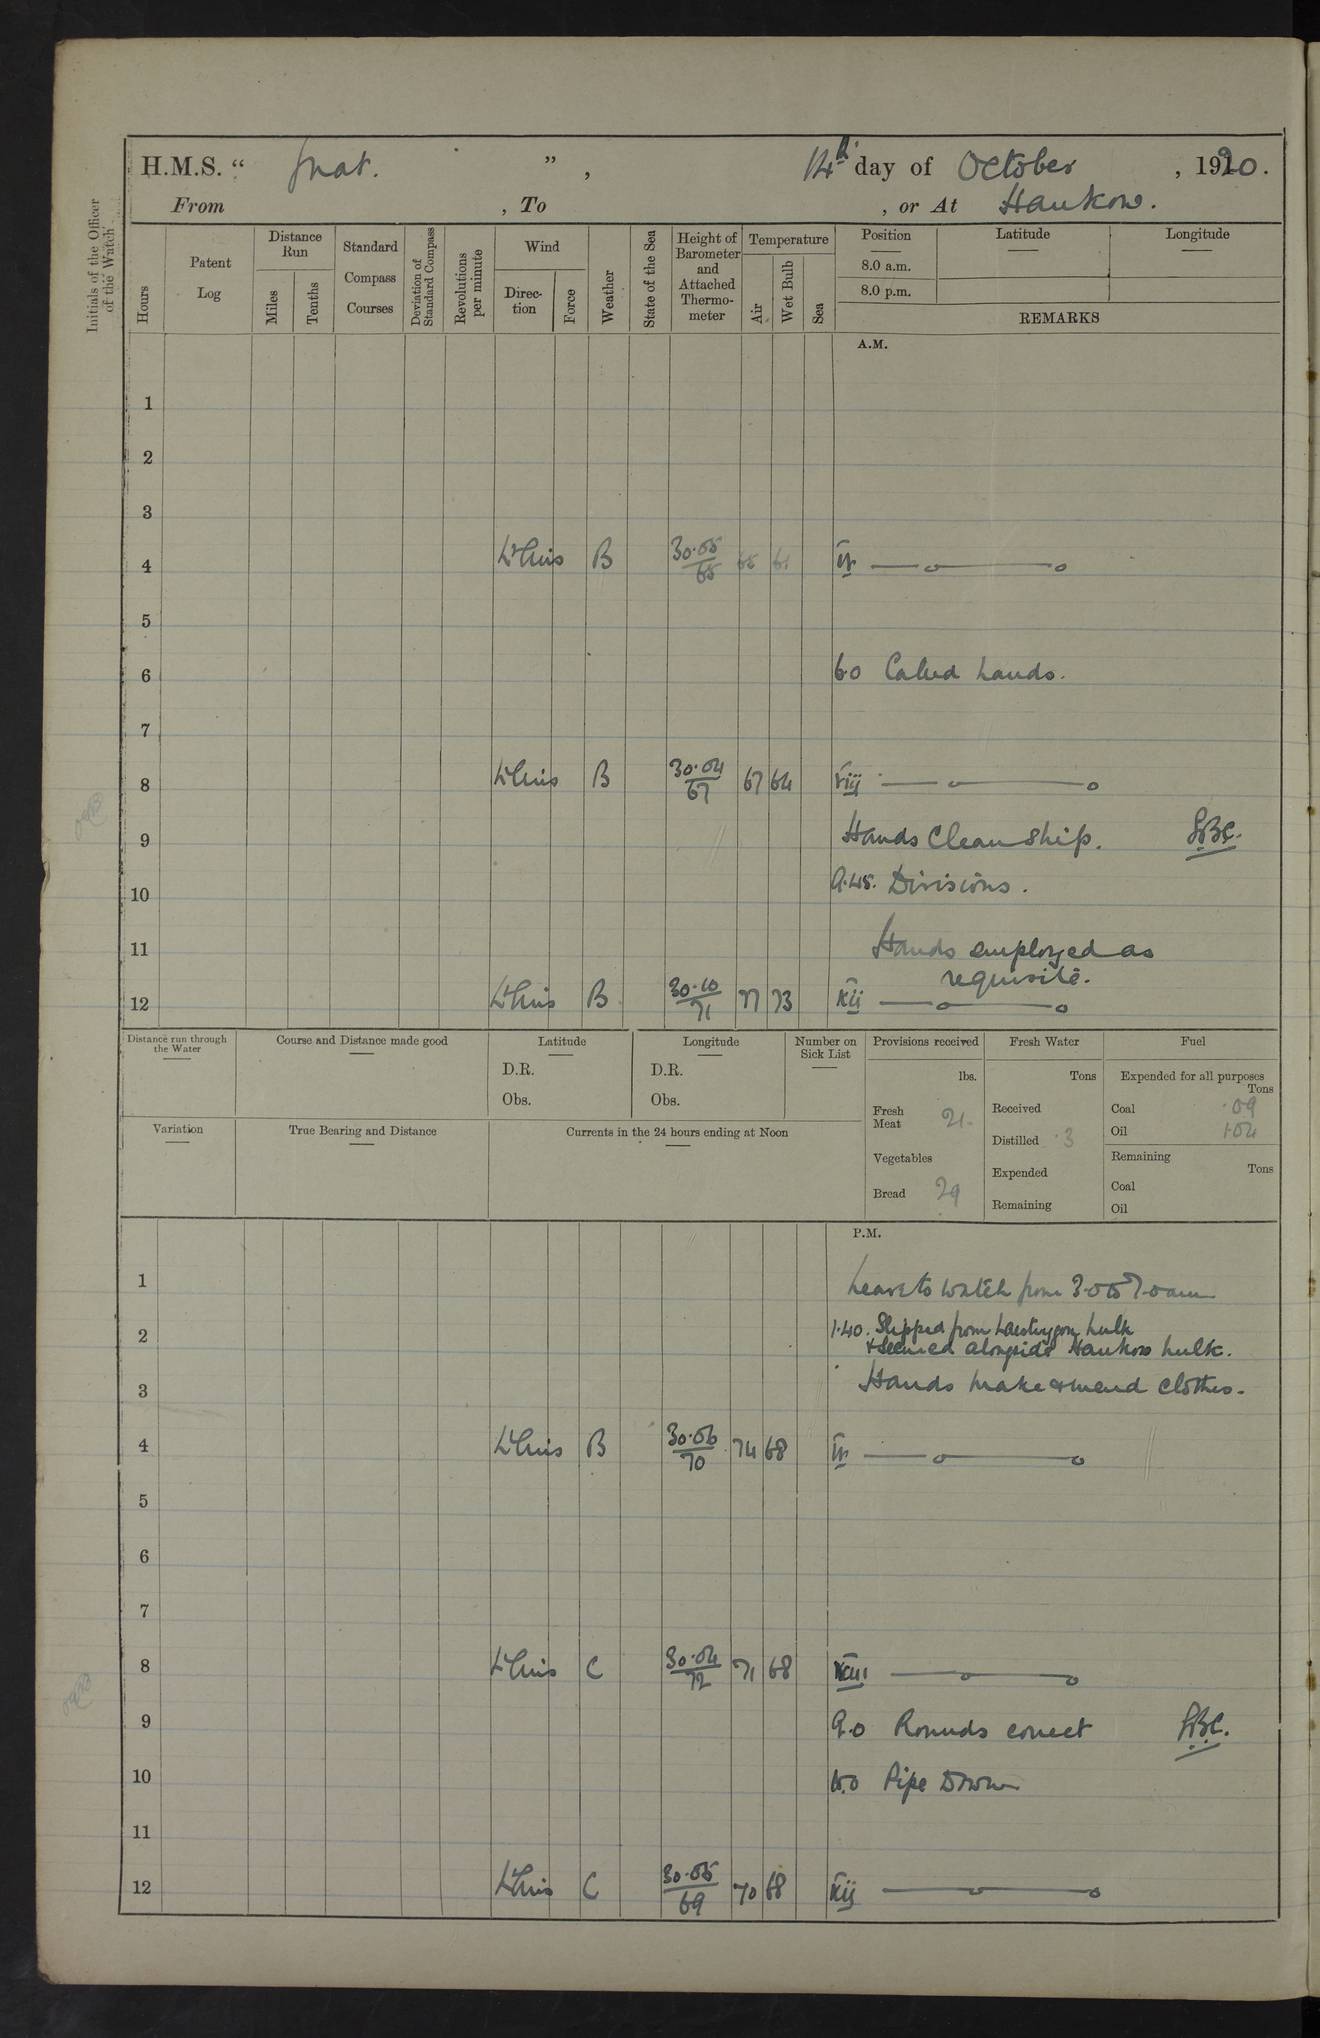 H.M.S. “ Gnat. ” , 14th day of October , 1920.
From , To , or At Hankow.
Initials of the Officer of the Watch
Hours
Patent Log
Distance Run
Miles
Tenths
Standard Compass Courses
Deviation of Standard Compass
Revolutions per minute
Wind
Direction
Force
Weather
State of the Sea
Height of Barometer and Attached Thermometer
Temperature
Air
Wet Bulb
Sea
Position Latitude Longitude
8.0 a.m.
8.0 p.m.
REMARKS
A.M.
1
2
3
4 Lt Airs B 30.05/65 65 61 IV
5
6 6.0 Called hands.
7
8 Lt Airs B 30.04/67 67 64 VIII
9 Hands Clean Ship. LBC.
9.45. Divisions.
10
11 Hands employed as
requisite.
12 Lt Airs B 30.10/71 77 73 XII
Distance run through the Water
Course and Distance made good
Latitude
D.R.
Obs.
Longitude
D.R.
Obs.
Number on Sick List
Provisions received
lbs.
Fresh Meat 21.
Vegetables
Bread 29
Fresh Water
Tons
Received
Distilled .3
Expended
Remaining
Fuel
Expended for all purposes
Tons
Coal .09
Oil 1.04
Remaining
Tons
Coal
Oil
Variation
True Bearing and Distance
Currents in the 24 hours ending at Noon
P.M.
1 Leave to watch from 3.0 to 7.0 am
2 1.40. Slipped from Laestrygon hulk
& secured alongside Hankow hulk.
3 Hands make & mend clothes.
4 Lt Airs B 30.06/70 74 68 IV
5
6
7
8 Lt Airs C 30.04/72 71 68 VIII
9 9.0 Rounds correct LBC.
10 10.0 Pipe Down
11
12 Lt Airs C 30.05/69 70 68 XII